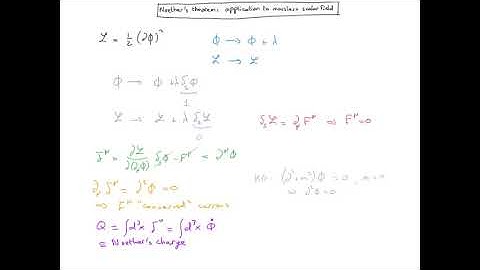 Noether's theorem: application to massless scalar field
ℒ = 1/2 (∂ϕ)²
ϕ → ϕ + λ
ℒ → ℒ
ϕ → ϕ + λ δₛϕ
1
ℒ → ℒ + λ δₛℒ
0
δₛℒ = ∂_μ F^μ ⇒ F^μ = 0
J^μ = ∂ℒ/∂(∂_μϕ) δₛϕ - F^μ = ∂^μ ϕ
KG: (∂² + m²) ϕ = 0, m = 0
⇒ ∂²ϕ = 0
∂_μ J^μ = ∂²ϕ = 0
⇒ J^μ "conserved" current
Q = ∫d³x J⁰ = ∫d³x ϕ̇
= Noether's charge